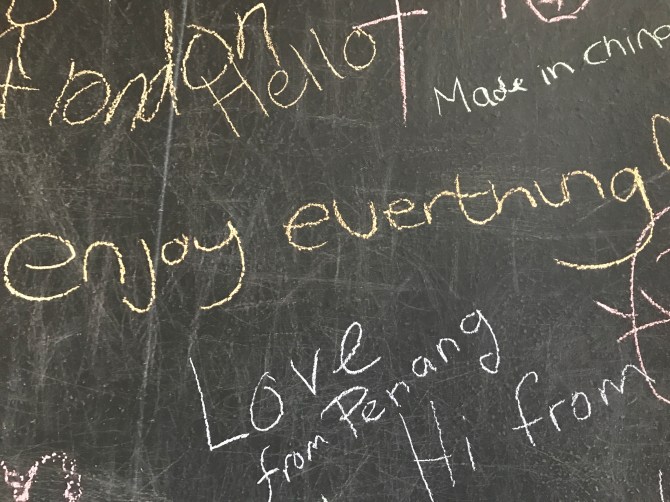 London
Hello
Made in china
enjoy everthing
Love
from Penang
Hi from